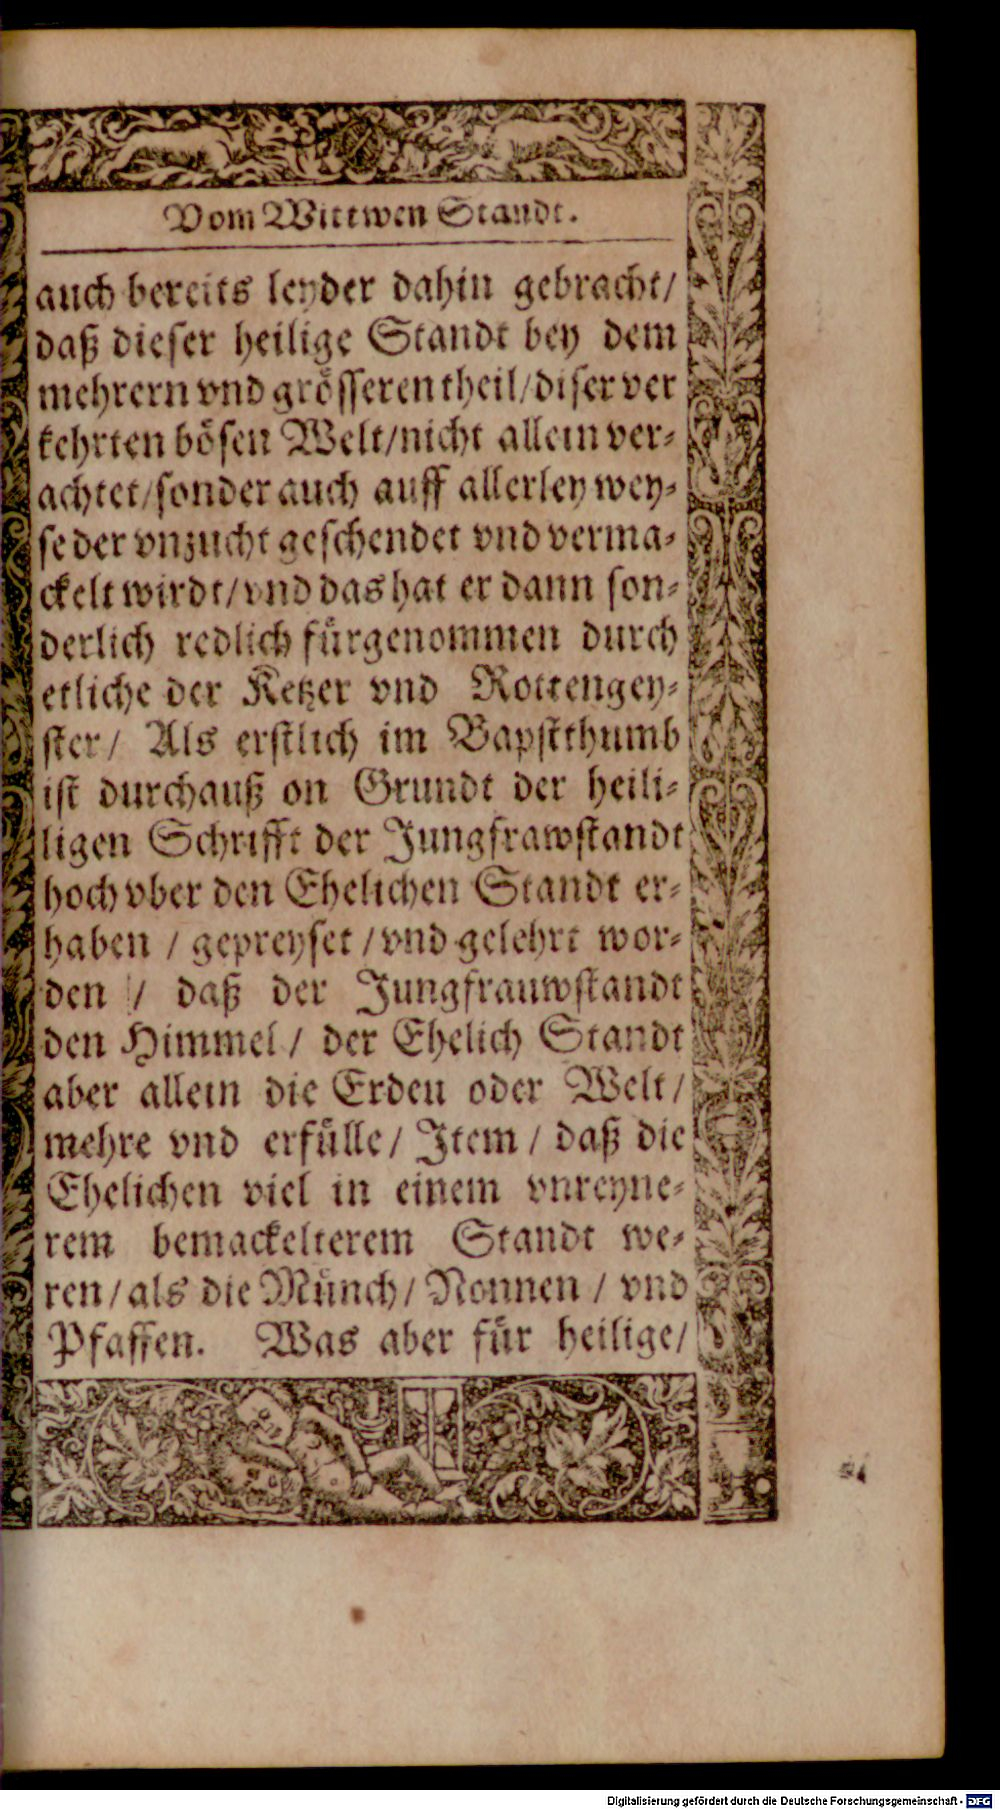 Vom Wittwen Standt.
auch bereits leyder dahin gebracht/
daß dieser heilige Standt bey dem
mehrern vnd grösseren theil/diser ver
kehrten bösen Welt/nicht allein ver-
achtet/sonder auch auff allerley wey-
se der vnzucht geschendet vnd verma-
ckelt wirdt/vnd das hat er dann son-
derlich redlich fürgenommen durch
etliche der Ketzer vnd Rottengey-
ster/ Als erstlich im Bapstthumb
ist durchauß on Grundt der heili-
ligen Schrifft der Jungfrawstandt
hoch vber den Ehelichen Standt er-
haben / gepreyset /vnd gelehrt wor-
den / daß der Jungfrauwstandt
den Himmel / der Ehelich Standt
aber allein die Erden oder Welt/
mehre vnd erfülle/ Item / daß die
Ehelichen viel in einem vnreyne-
rem bemackelterem Standt we-
ren/als die Münch/ Nonnen / vnd
Pfaffen. Was aber für heilige/
Digitalisierung gefördert durch die Deutsche Forschungsgemeinschaft - DFG